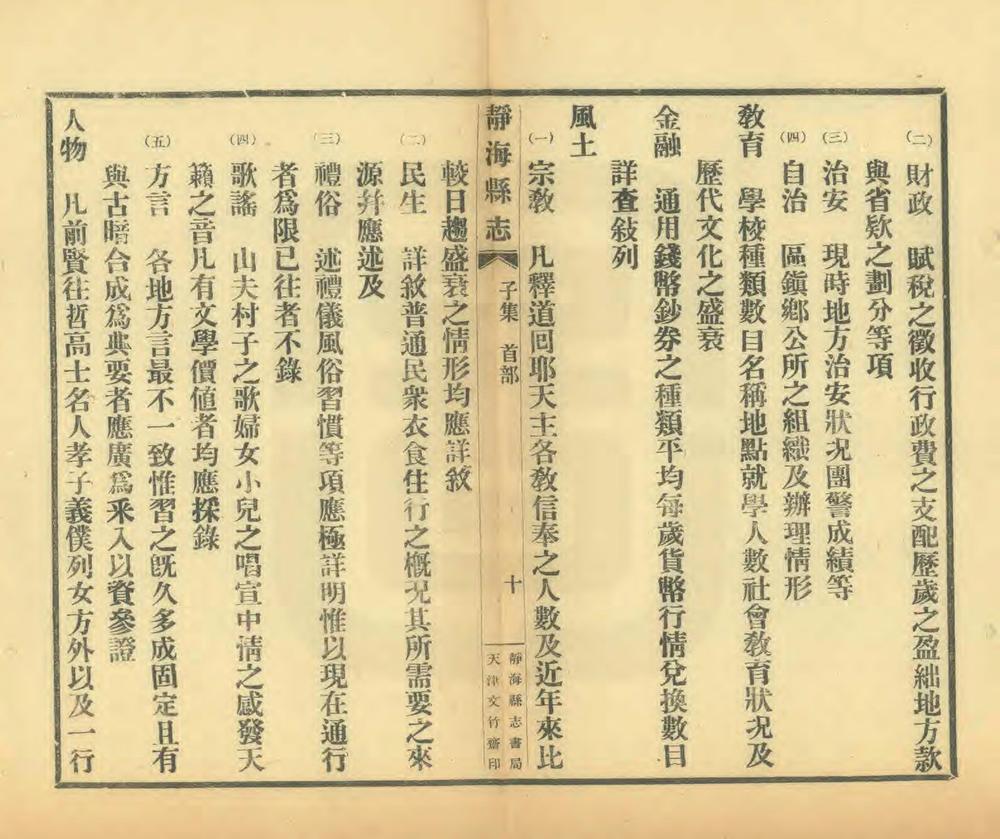 ㈡財政　賦稅之徵收行政費之支配歷歲之盈絀地方款
與省欵之劃分等項
㈢治安　現時地方治安狀况團警成績等
㈣自治　區鎭鄉公所之組織及辦理情形
敎育　學校種類數目名稱地點就學人數社會敎育狀况及
歷代文化之盛衰
金融　通用錢幣鈔券之種類平均每歲貨幣行情兌換數目
詳查敍列
風土
㈠宗敎　凡釋道回耶天主各敎信奉之人數及近年來比
靜海縣志　子集　首部　十　靜海縣志書局
天津文竹齋印
較日趨盛衰之情形均應詳敘
㈡民生　詳敘普通民衆衣食住行之概况其所需要之來
源幷應述及
㈢禮俗　述禮儀風俗習慣等項應極詳明惟以現在通行
者爲限已往者不錄
㈣歌謠　山夫村子之歌婦女小兒之唱宣中情之感發天
籟之音凡有文學價値者均應採錄
㈤方言　各地方言最不一致惟習之旣久多成固定且有
與古暗合成爲典要者應廣爲釆入以資參證
人物　凡前賢往哲高士名人孝子義僕列女方外以及一行